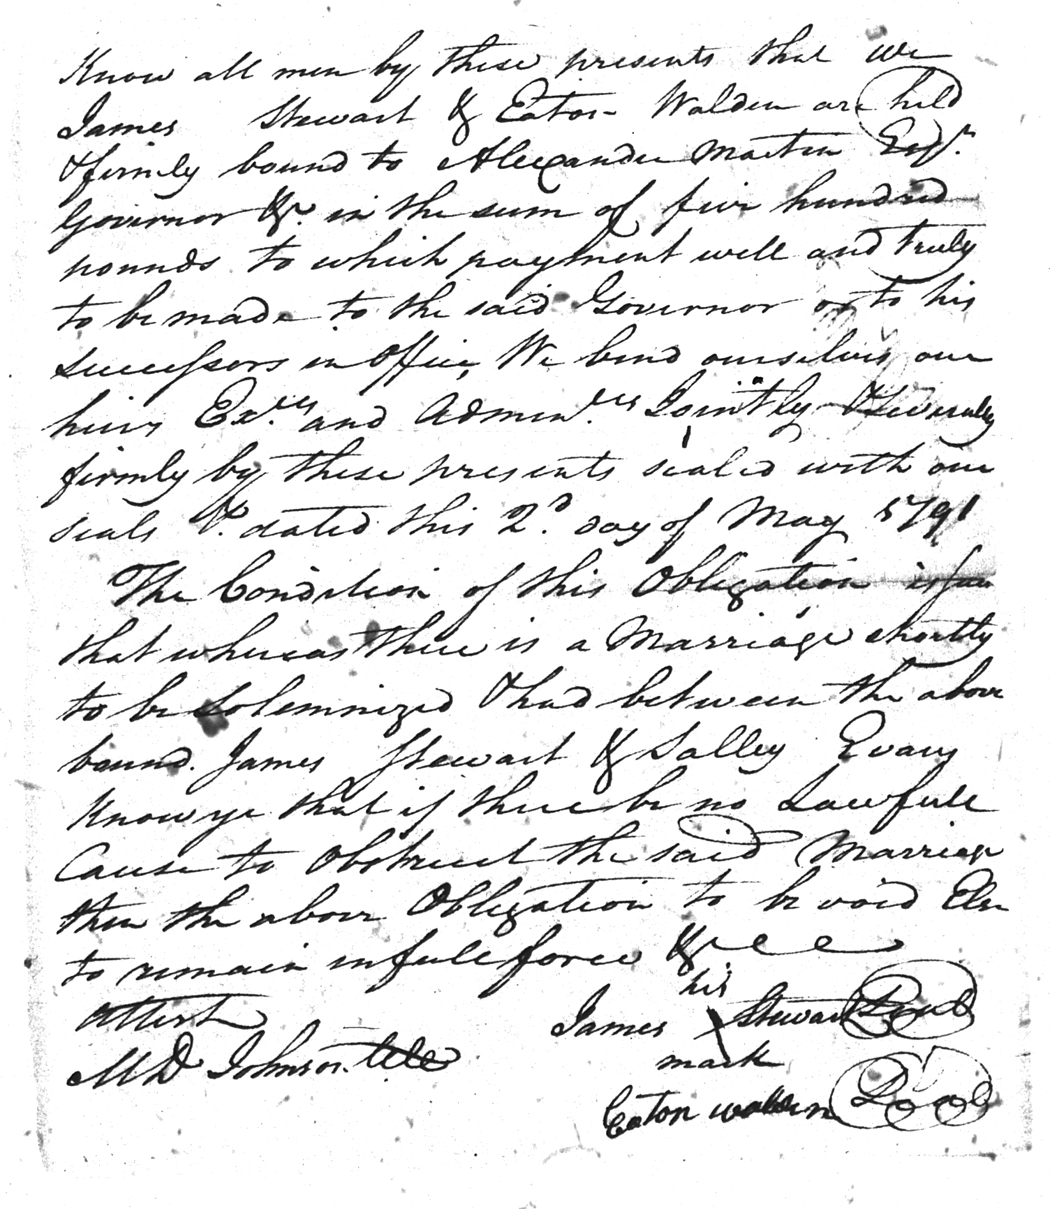 Know all men by these presents that we
James Stewart & Eaton Walden are held
& firmly bound to Alexander Martin Esqr.
Governor &c. in the sum of five hundred
pounds to which payment well and truly
to be made to the said Governor or to his
successors in office, We bind ourselves our
heirs Exres. and Adminres. Jointly & Severally
firmly by these presents sealed with our
seals &. dated this 2d. day of May 1791
The Condition of this Obligation is such
that whereas there is a Marriage shortly
to be solemnized & had between the above
bound. James Stewart & Salley Evans
Know ye that if there be no Lawfull
Cause to Obstruct the said Marriage
then the above Obligation to be void Else
to remain in full force &c
his
Attest James X Stewart Seal
mark
M D Johnson
Eaton walden Seal